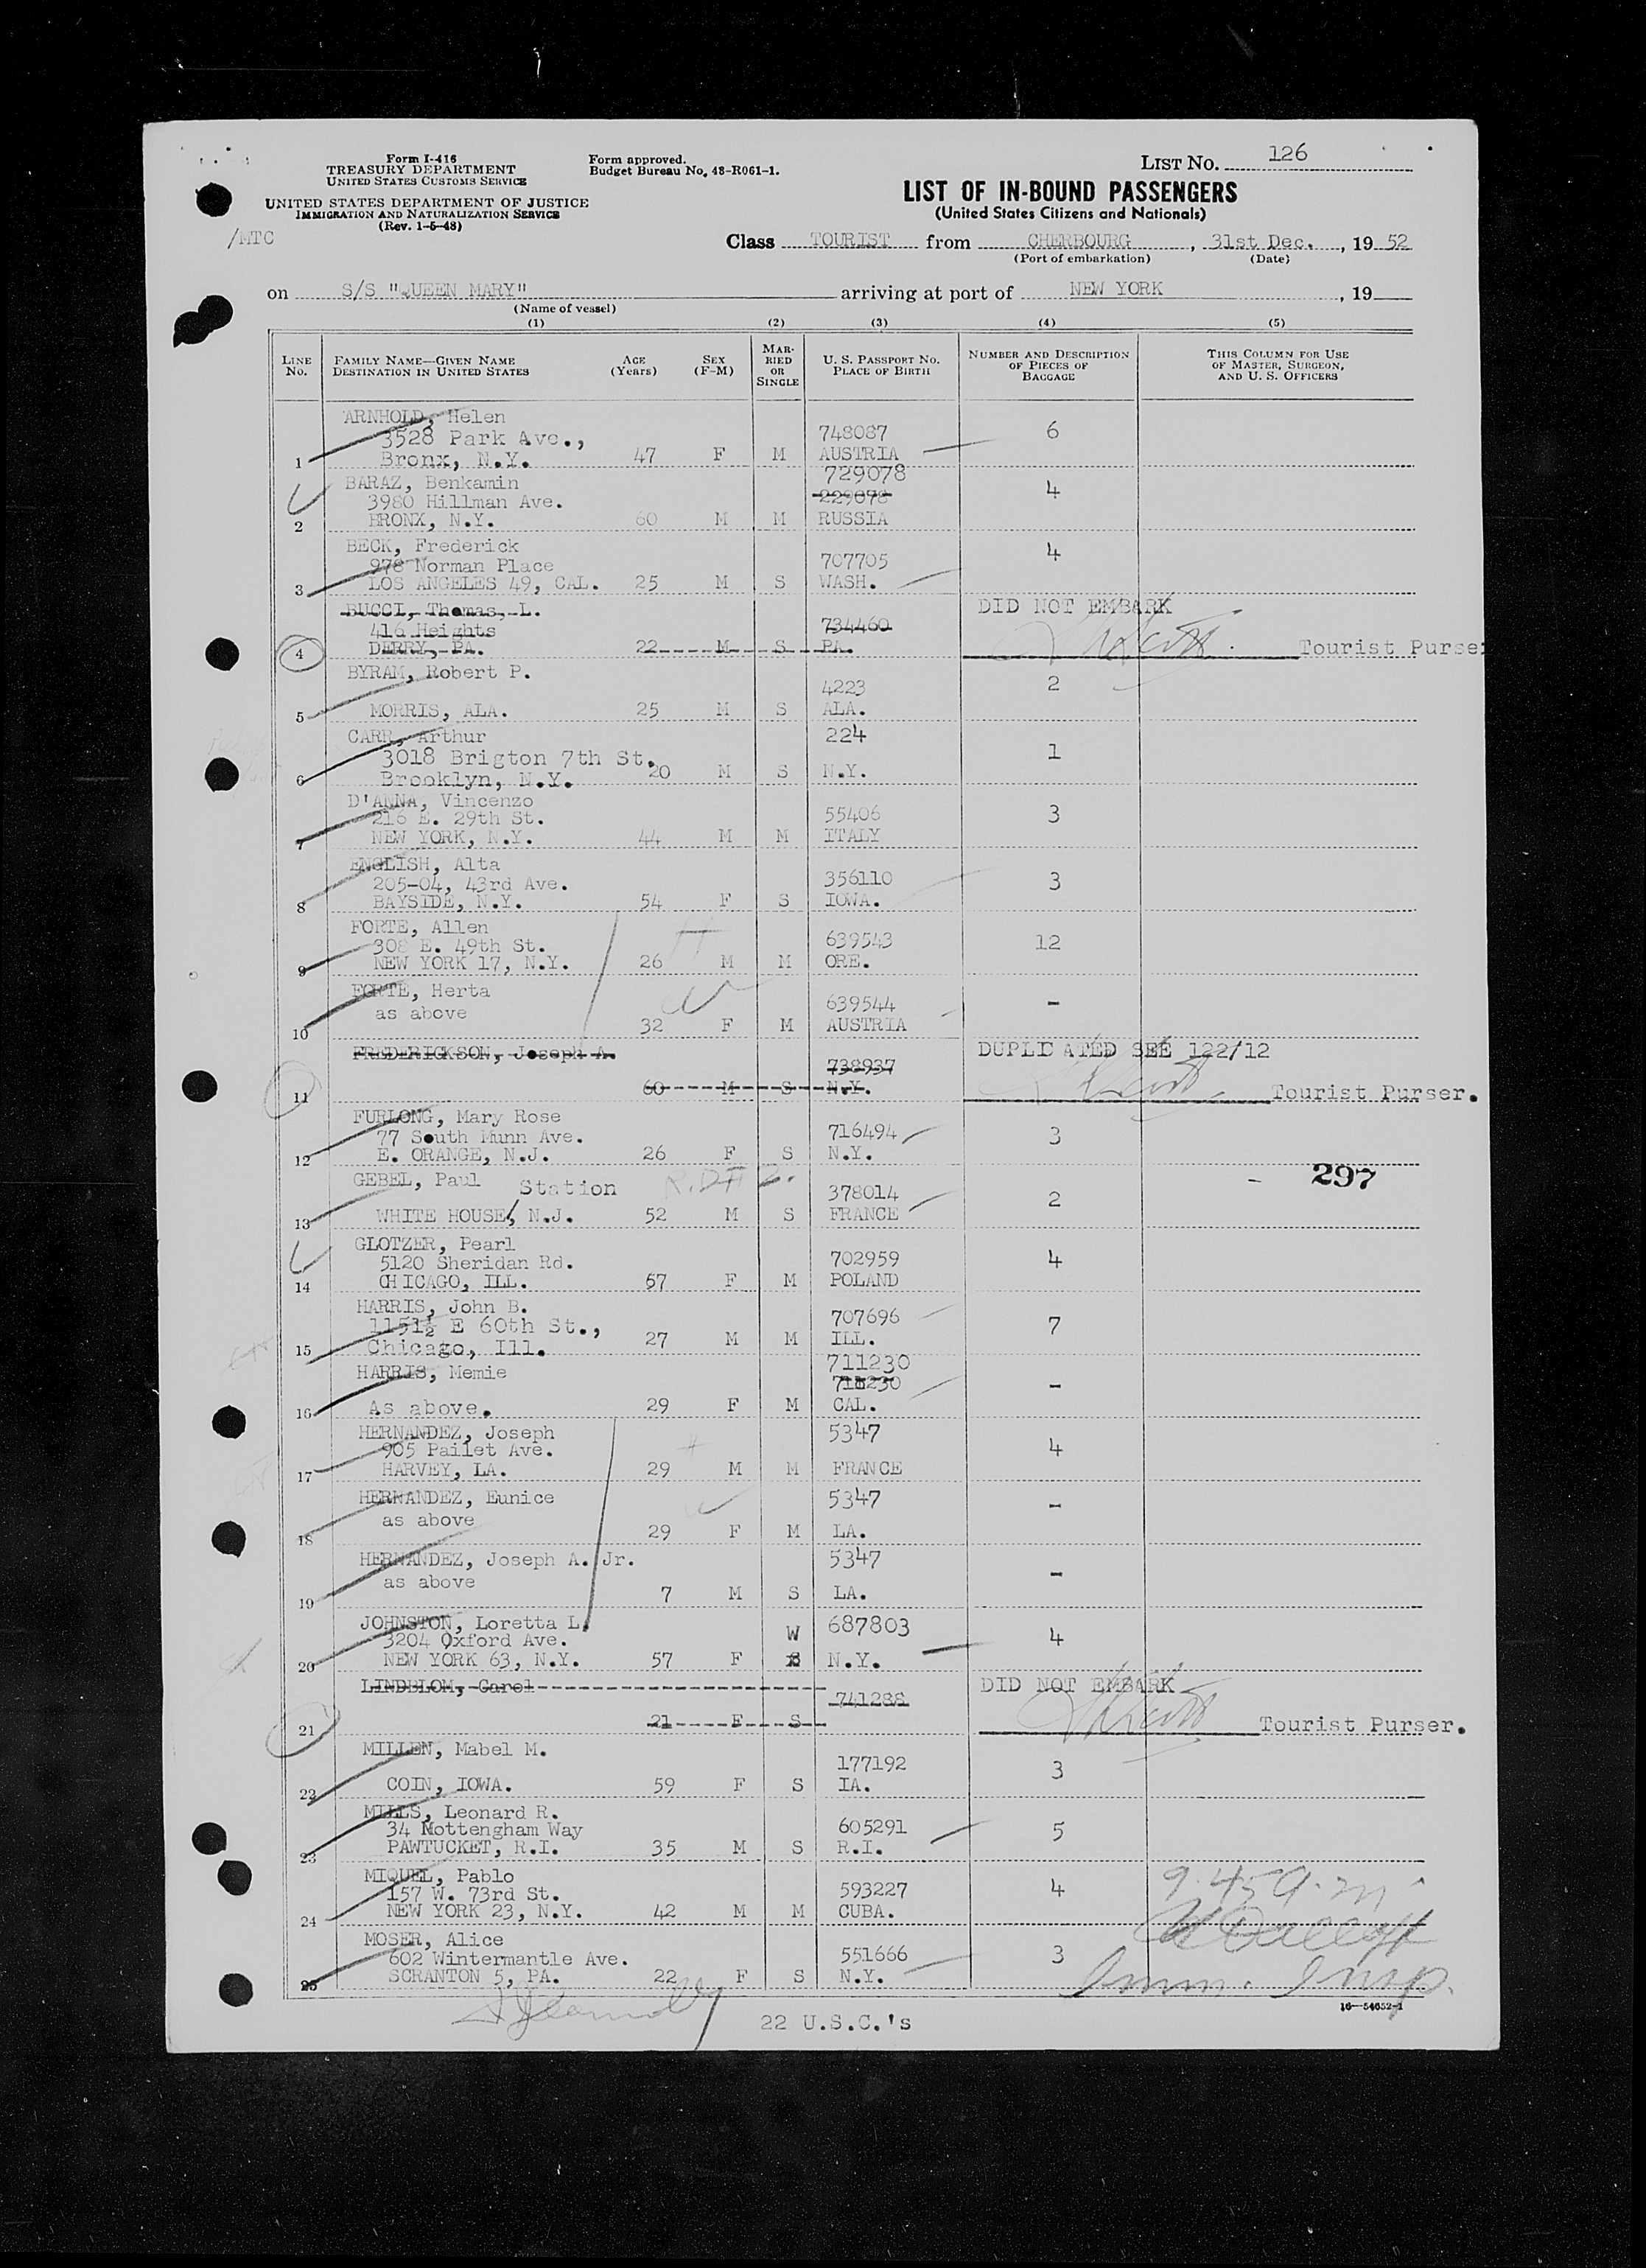 Form I-416
TREASURY DEPARTMENT
UNITED STATES CUSTOMS SERVICE
UNITED STATES DEPARTMENT OF JUSTICE
IMMIGRATION AND NATURALIZATION SERVICE
(Rev. 1-5-48)
/MTC
Form approved.
Budget Bureau No. 43-R061-1.
LIST NO. 126
LIST OF IN-BOUND PASSENGERS
(United States Citizens and Nationals)
Class TOURIST from CHERBOURG, 31st Dec., 19 52
(Port of embarkation) (Date)
on S/S "QUEEN MARY" arriving at port of NEW YORK, 19
(Name of vessel)
(1) (2) (3) (4) (5)
LINE NO. FAMILY NAME—GIVEN NAME DESTINATION IN UNITED STATES AGE (Years) SEX (F-M) MARRIED OR SINGLE U. S. PASSPORT NO. PLACE OF BIRTH NUMBER AND DESCRIPTION OF PIECES OF BAGGAGE THIS COLUMN FOR USE OF MASTER, SURGEON, AND U. S. OFFICERS
ARNHOLD, Helen
3528 Park Ave., 748087 6
1 Bronx, N.Y. 47 F M AUSTRIA
BARAZ, Benkamin 729078
3980 Hillman Ave. 229078 4
2 BRONX, N.Y. 60 M M RUSSIA
BECK, Frederick
978 Norman Place 707705 4
3 LOS ANGELES 49, CAL. 25 M S WASH.
BUCCI, Thomas, L. DID NOT EMBARK
416 Heights 734460
4 DERRY, PA. 22 M S PA. Tourist Purser
BYRAM, Robert P.
4223 2
5 MORRIS, ALA. 25 M S ALA.
CARR, Arthur 224
3018 Brigton 7th St. 1
6 Brooklyn, N.Y. 20 M S N.Y.
D'ANNA, Vincenzo
216 E. 29th St. 55406 3
7 NEW YORK, N.Y. 44 M M ITALY
ENGLISH, Alta
205-04, 43rd Ave. 356110 3
8 BAYSIDE, N.Y. 54 F S IOWA.
FORTE, Allen
308 E. 49th St. 639543 12
9 NEW YORK 17, N.Y. 26 M M ORE.
FORTE, Herta
as above 639544 -
10 32 F M AUSTRIA
FREDERICKSON, Joseph A. DUPLICATED SEE 122/12
738937
11 60 M S N.Y. Tourist Purser.
FURLONG, Mary Rose
77 South Munn Ave. 716494 3
12 E. ORANGE, N.J. 26 F S N.Y.
GEBEL, Paul Station R.D# 2. - 297
378014 2
13 WHITE HOUSE, N.J. 52 M S FRANCE
GLOTZER, Pearl
5120 Sheridan Rd. 702959 4
14 CHICAGO, ILL. 57 F M POLAND
HARRIS, John B.
1151½ E 60th St., 707696 7
15 Chicago, Ill. 27 M M ILL.
HARRIS, Memie 711230
-
16 As above. 29 F M CAL.
HERNANDEZ, Joseph 5347
905 Pailet Ave. 4
17 HARVEY, LA. 29 M M FRANCE
HERNANDEZ, Eunice 5347
as above -
18 29 F M LA.
HERNANDEZ, Joseph A. Jr. 5347
as above -
19 7 M S LA.
JOHNSTON, Loretta L. W 687803
3204 Oxford Ave. 4
20 NEW YORK 63, N.Y. 57 F N.Y.
LINDBLOM, Carol DID NOT EMBARK
741288
21 21 F S Tourist Purser.
MILLEN, Mabel M.
177192 3
22 COIN, IOWA. 59 F S IA.
MILLS, Leonard R.
34 Nottengham Way 605291 5
23 PAWTUCKET, R.I. 35 M S R.I.
MIQUEL, Pablo
157 W. 73rd St. 593227 4
24 NEW YORK 23, N.Y. 42 M M CUBA.
MOSER, Alice
602 Wintermantle Ave. 551666 3
25 SCRANTON 5, PA. 22 F S N.Y. Imm. Insp.
16—54652-1
22 U.S.C.'s